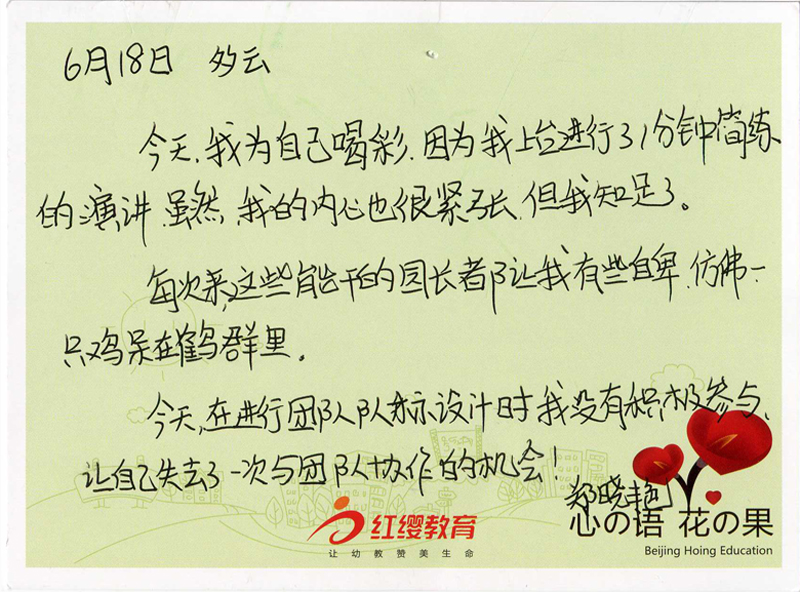 6月18日 多云
今天,我为自己喝彩.因为我上台进行了1分钟简练
的演讲.虽然,我的内心也很紧张,但我知足了。
每次来,这些能干的园长者都让我有些自卑.仿佛一
只鸡呆在鹤群里。
今天,在进行团队队标设计时我没有积极参与,
让自己失去了一次与团队协作的机会!
郑晓艳
红缨教育
让幼教赞美生命
心の语 花の果
Beijing Hoing Education